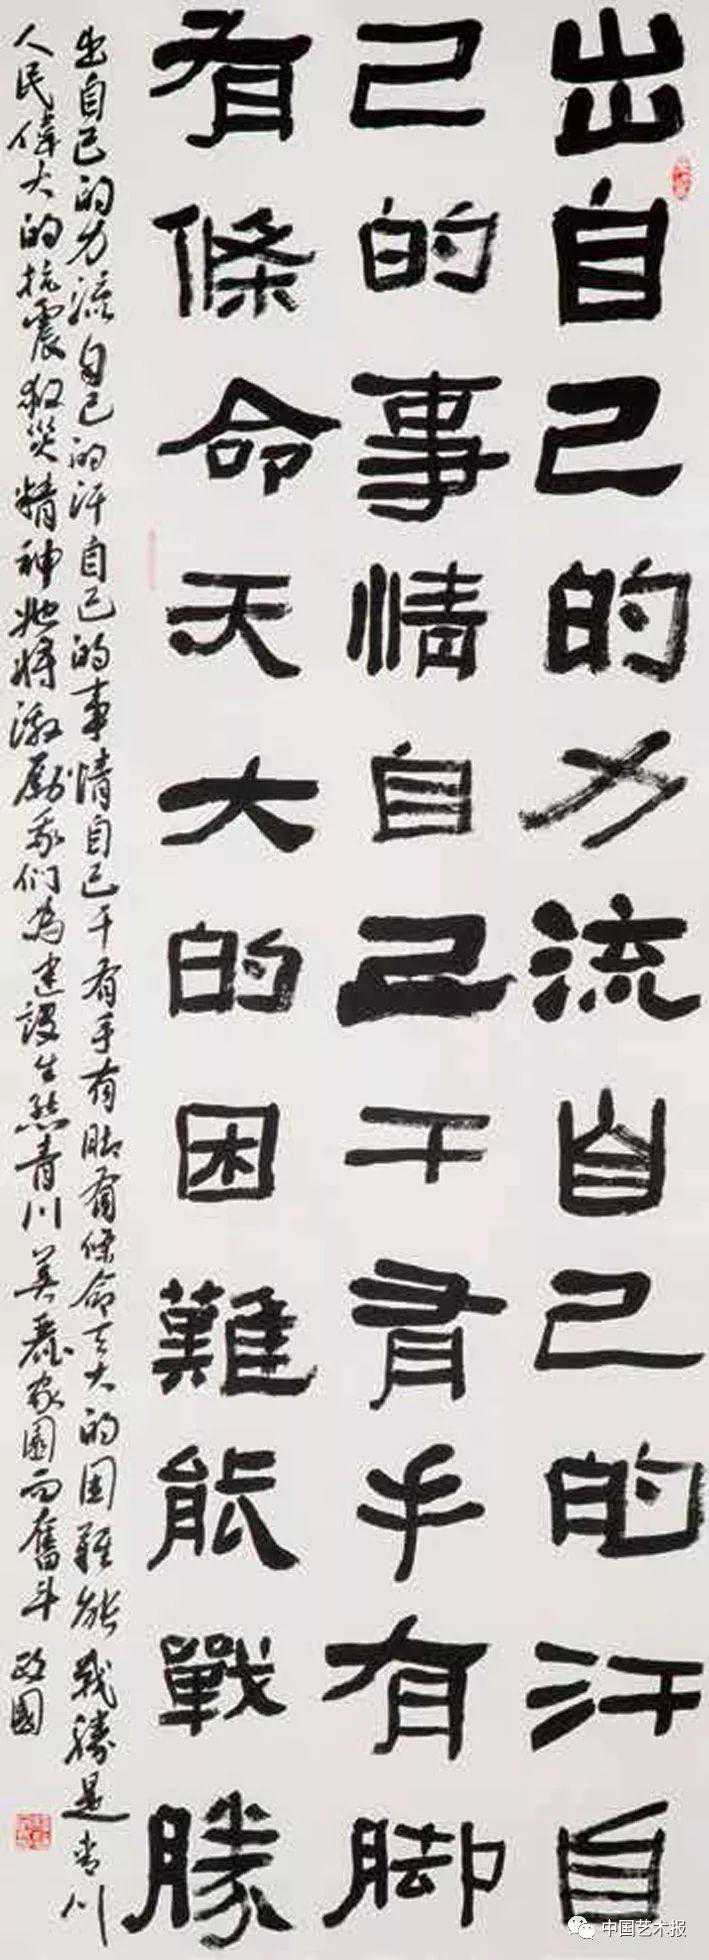 出自己的力流自己的汗自
己的事情自己干有手有脚
有條命天大的困難能戰勝
出自己的力流自己的汗自己的事情自己干有手有脚有條命天大的困難能戰勝是青川
人民偉大的抗震救災精神她將激勵我們為建設生態青川美麗家園而奮斗 政國
中国艺术报